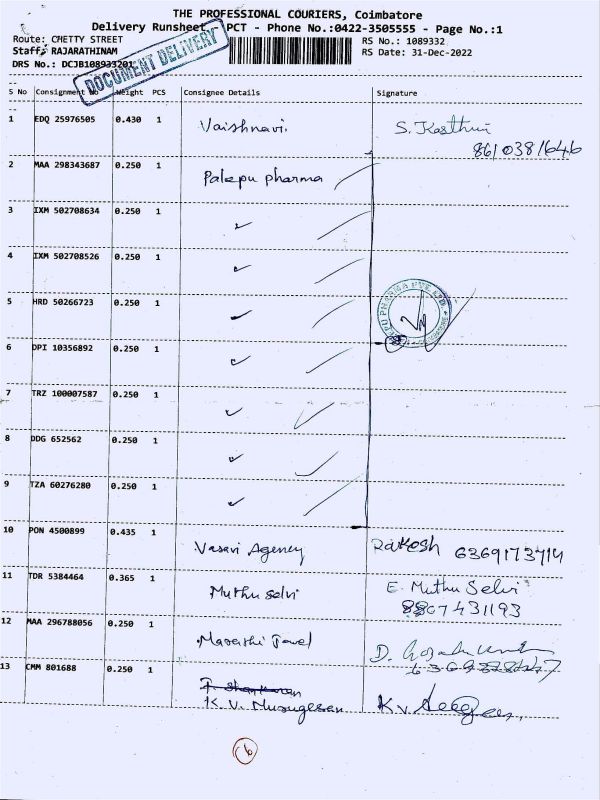 THE PROFESSIONAL COURIERS, Coimbatore
Delivery Runsheet - PCT - Phone No.:0422-3505555 - Page No.:1
Route: CHETTY STREET
RS No.: 1089332
Staff: RAJARATHINAM
RS Date: 31-Dec-2022
DRS No.: DCJB108933201
DOCUMENT DELIVERY
S No Consignment No Weight PCS Consignee Details Signature
1 EDQ 25976505 0.430 1 Vaishnavi.
8610381646
2 MAA 298343687 0.250 1 Palepu pharma
3 IXM 502708634 0.250 1
4 IXM 502708526 0.250 1
5 HRD 50266723 0.250 1
6 DPI 10356892 0.250 1
7 TRZ 100007587 0.250 1
8 DDG 652562 0.250 1
9 TZA 60276280 0.250 1
10 PON 4500899 0.435 1 Vasavi Agency Rakesh 6369173714
11 TDR 5384464 0.365 1 Muthu selvi E. Muthu Selvi
12 MAA 296788056 0.250 1
13 CMM 801688 0.250 1
K. V. Murugesan K V
6